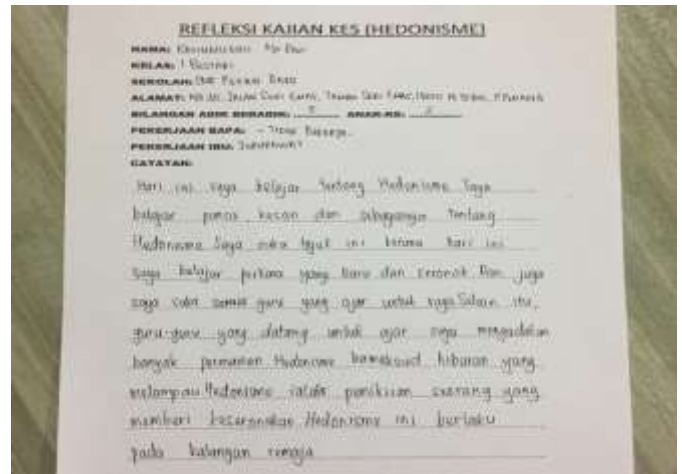 REFLEKSI KAJIAN KES (HEDONISME)
NAMA:
KELAS: 1
SEKOLAH: SMK
ALAMAT: JALAN TAMAN
BILANGAN ADIK BERADIK: ANAK KE:
PEKERJAAN BAPA: - Tidak Bekerja
PEKERJAAN IBU:
CATATAN:
Hari ini saya belajar tentang Hedonisme Saya
belajar punca kesan dan sebagainya tentang
Hedonisme Saya suka tajuk ini kerana hari ini
saya belajar perkara yang baru dan seronok Dan juga
saya suka semua guru yang ajar untuk saya Selain itu,
guru-guru yang datang untuk ajar saya mengadakan
banyak permainan Hedonisme bermaksud hiburan yang
melampau Hedonisme ialah pemikiran seorang yang
memberi keseronokan Hedonisme ini berlaku
pada kalangan remaja